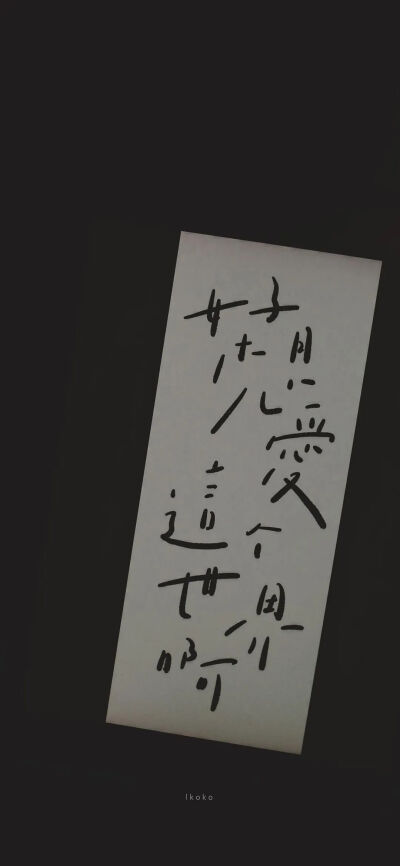 好想愛這个世界啊
Ikoko